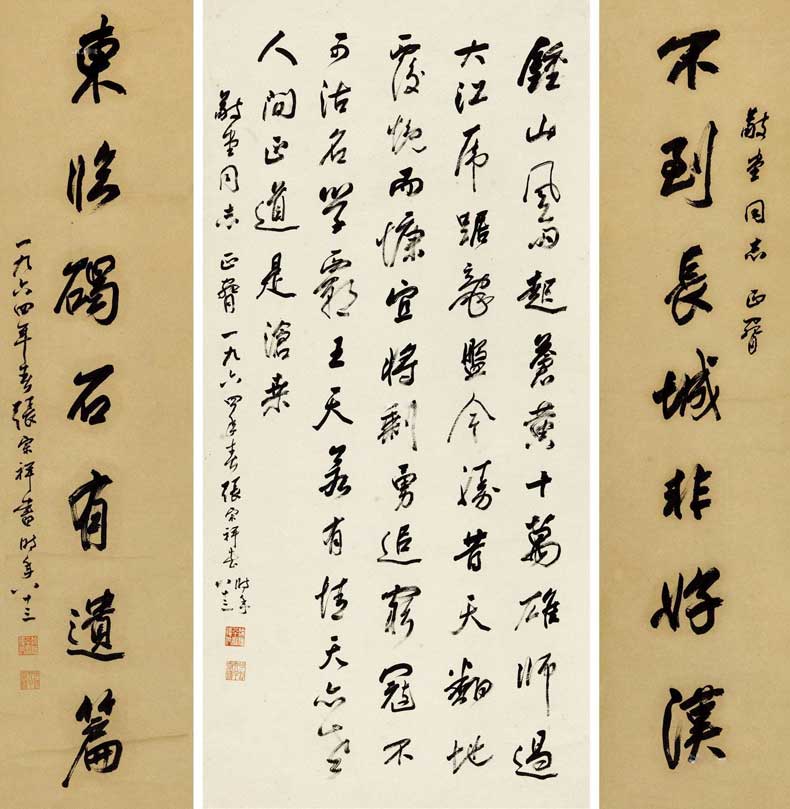 同志正
不到長城非好漢
鍾山風雨起蒼黄十萬雄師過
大江虎踞龍盤今勝昔天翻地
覆慨而慷宜將剩勇追窮寇不
可沽名學霸王天若有情天亦老
人間正道是滄桑
同志正 一九六四年春張宗祥書時年八十三
東臨碣石有遺篇
一九六四年春張宗祥書時年八十三